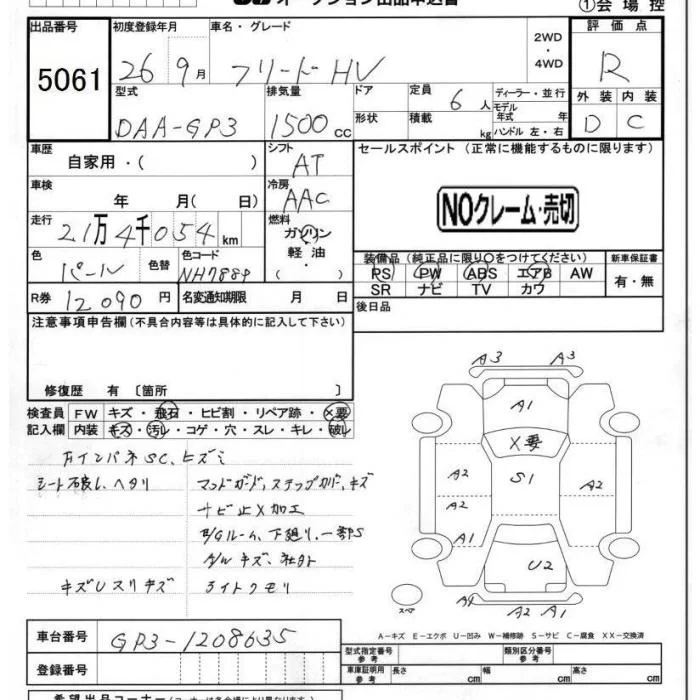 オークション出品申込書
①会場控
出品番号 初度登録年月 車名・グレード 評価点
5061 26 9月 フリードHV 2WD・4WD R
型式 排気量 ドア 定員 6人 ディーラー・並行 外装 内装
DAA-GP3 1500cc 形状 積載 kg モデル年式 年 ハンドル 左・右 D C
車歴 シフト セールスポイント (正常に機能するものに限ります)
自家用・( ) AT
車検 年 月( 日) 冷房 AAC NOクレーム・売切
走行 燃料
21万4千054km ガソリン
色 色替 色コード 軽油・ 装備品(純正品に限り○をつけてください) 新車保証書
パール NH788P ( PS PW ABS エアB AW 有・無
R券 12,090円 名変通知期限 月 日 SR ナビ TV カワ
注意事項申告欄(不具合内容等は具体的に記入して下さい) 後日品
修復歴 有 〔箇所 〕
検査員 FW キズ・飛石・ヒビ割・リペア跡・X要
記入欄 内装 キズ・汚レ・コゲ・穴・スレ・キレ・破レ
カインパネSC、ヒズミ
シート破レ、ヘタリ マッドガード、ステップカバー、キズ
ナビ止メ加工
E/Gルーム、下廻り、一部PS
A/Wキズ、社外
キズUスリキズ ライトクモリ
A3 A3
A1
X要
A2 S1 A2
A2
A1
U2
スペア A1 A2 A1
A-キズ E-エクボ U-凹み W-補修跡 S-サビ C-腐食 XX-交換済
車台番号 GP3-1208635 型式指定番号参考 類別区分番号参考
登録番号 車庫証明用参考 長さ cm 幅 cm 高さ cm
希望出品コーナー